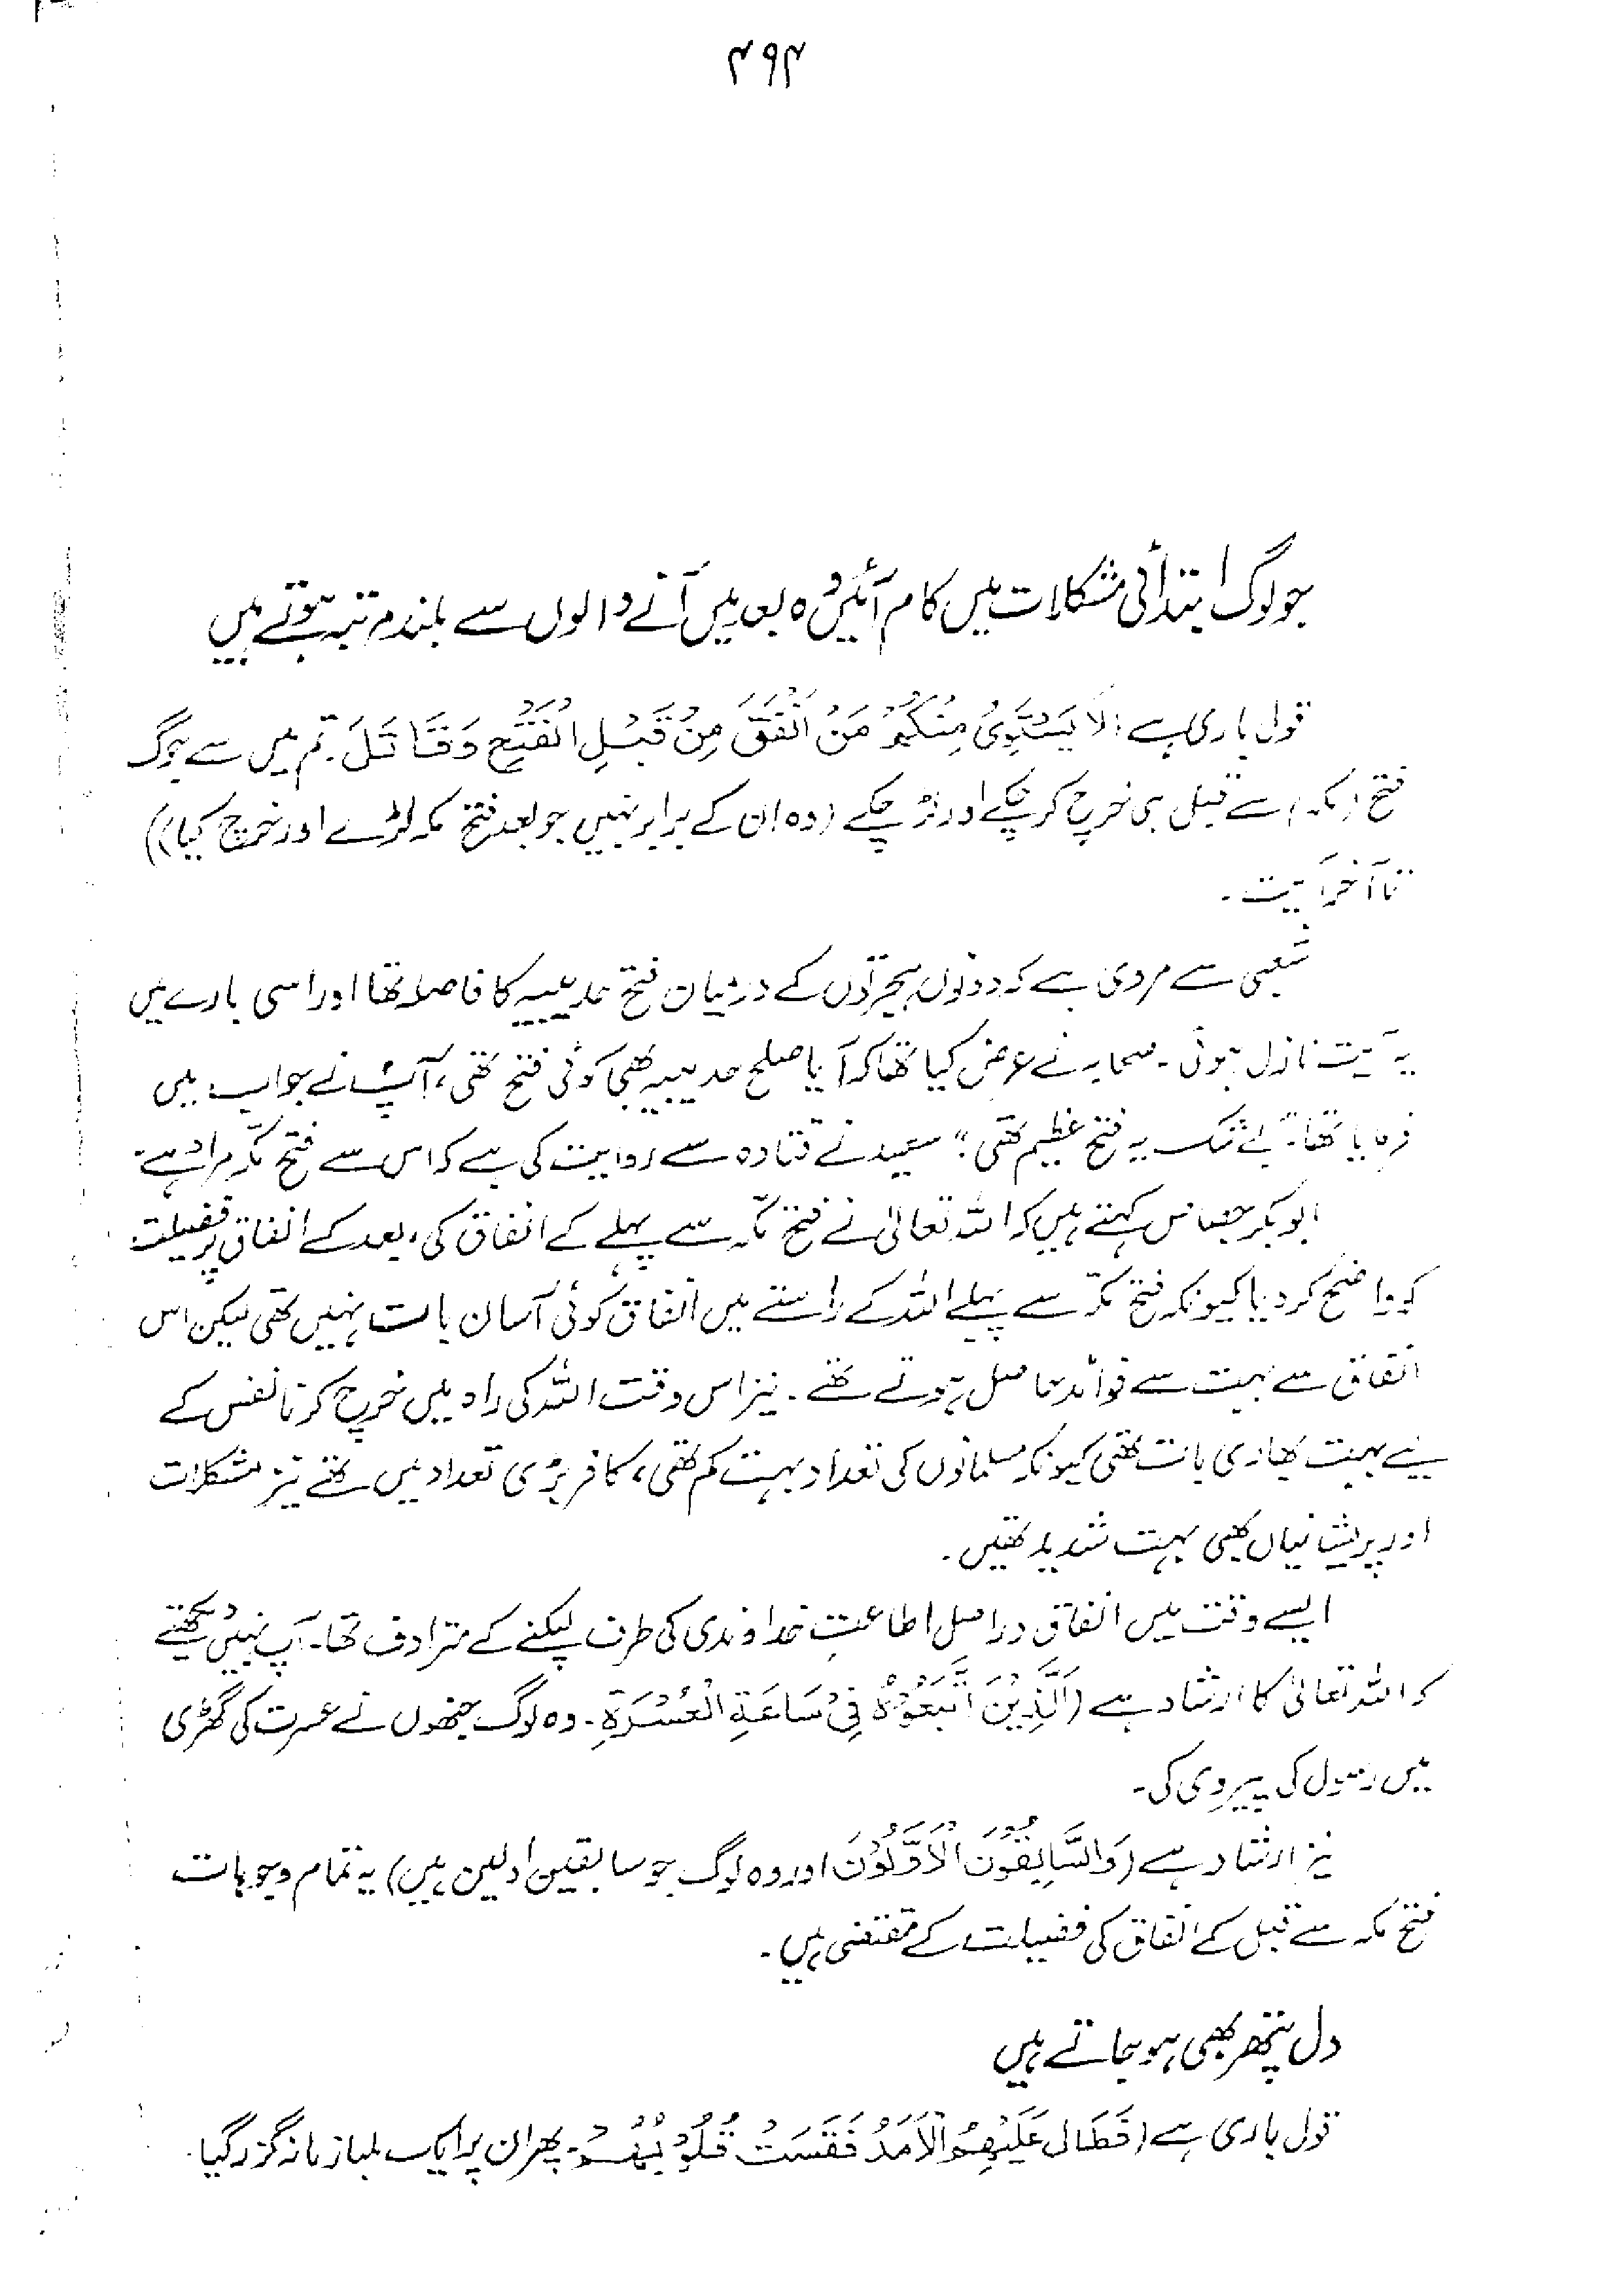 ۴۹۴
جو لوگ ابتدائی مشکلات میں کام آئیں وہ بعد میں آنے والوں سے بلند مرتبہ ہوتے ہیں
قول باری ہے (لَا يَسْتَوِي مِنْكُمْ مَنْ أَنْفَقَ مِنْ قَبْلِ الْفَتْحِ وَقَاتَلَ۔ تم میں سے جو لوگ
فتح (مکہ) سے قبل ہی خرچ کر چکے اور لڑ چکے (وہ ان کے برابر نہیں جو بعد فتح مکہ لڑے اور خرچ کیا))
تا آخر آیت۔
شعبی سے مروی ہے کہ دونوں ہجرتوں کے درمیان فتح حدیبیہ کا فاصلہ تھا اور اسی بارے میں
یہ آیت نازل ہوئی۔ صحابہ نے عرض کیا تھا کہ آیا صلح حدیبیہ بھی کوئی فتح تھی، آپؐ نے جواب میں
فرمایا تھا۔ "بے شک یہ فتح عظیم تھی" سعید نے قتادہ سے روایت کی ہے کہ اس سے فتح مکہ مراد ہے۔
ابوبکر جصاص کہتے ہیں کہ اللہ تعالیٰ نے فتح مکہ سے پہلے کے انفاق کی، بعد کے انفاق پر فضیلت
کو واضح کر دیا کیونکہ فتح مکہ سے پہلے اللہ کے راستے میں انفاق کوئی آسان بات نہیں تھی لیکن اس
انفاق سے بہت سے فوائد حاصل ہوتے تھے۔ نیز اس وقت اللہ کی راہ میں خرچ کرنا نفس کے
لیے بہت بھاری بات تھی کیونکہ مسلمانوں کی تعداد بہت کم تھی، کافر بڑی تعداد میں تھے نیز مشکلات
اور پریشانیاں بھی بہت شدید تھیں۔
ایسے وقت میں انفاق دراصل اطاعتِ خداوندی کی طرف لپکنے کے مترادف تھا۔ آپ نہیں دیکھتے
کہ اللہ تعالیٰ کا ارشاد ہے (الَّذِينَ اتَّبَعُوهُ فِي سَاعَةِ الْعُسْرَةِ۔ وہ لوگ جنھوں نے عسرت کی گھڑی
میں رسول کی پیروی کی۔
نیز ارشاد ہے (وَالسَّابِقُونَ الْأَوَّلُونَ اور وہ لوگ جو سابقین اولین ہیں) یہ تمام وجوہات
فتح مکہ سے قبل کے انفاق کی فضیلت کے مقتضی ہیں۔
دل پتھر بھی ہو جاتے ہیں
قول باری ہے (فَطَالَ عَلَيْهِمُ الْأَمَدُ فَقَسَتْ قُلُوبُهُمْ۔ پھر ان پر ایک لمبا زمانہ گزر گیا۔